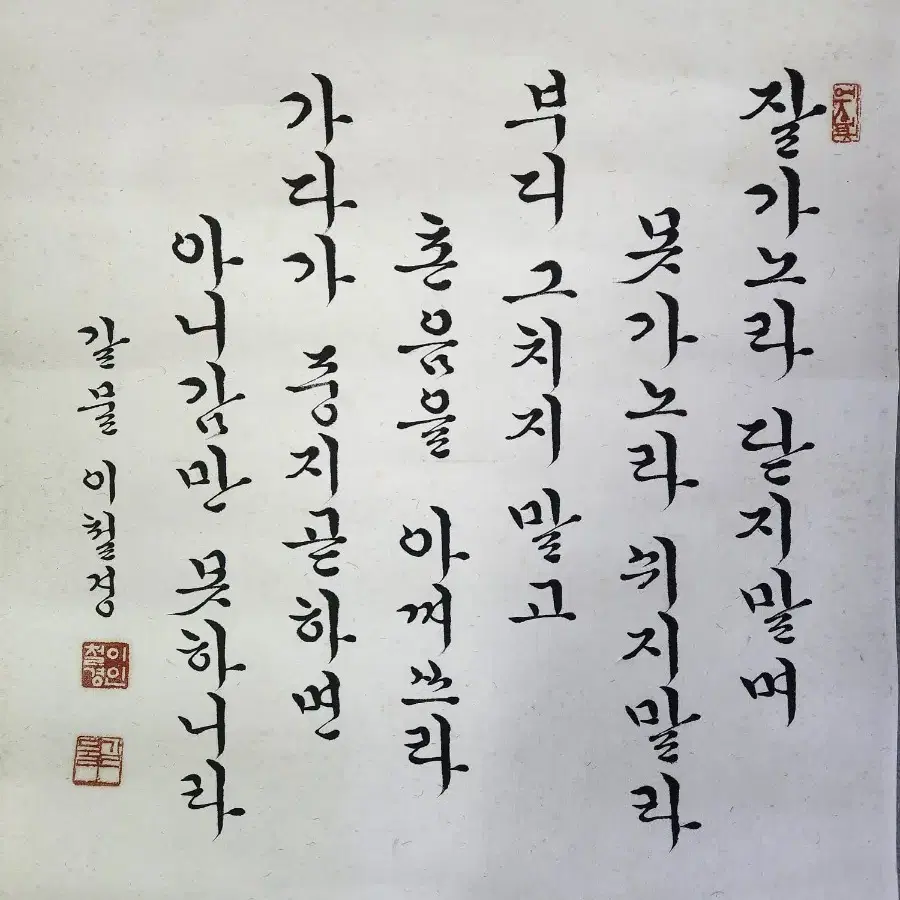 잘가노라 닫지말며
못가노라 쉬지말라
부디 그치지 말고
촌음을 아껴쓰라
가다가 중지곧하면
아니감만 못하니라
갈물 이철경
이인철경